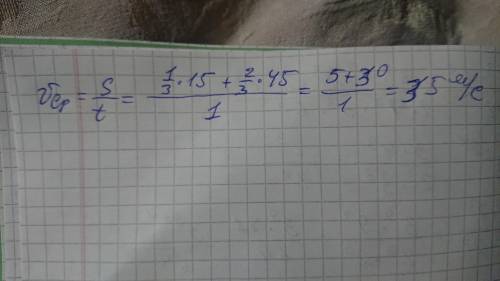 Vср = S/t = (1/3 · 15 + 2/3 · 45)/1 = (5 + 30)/1 = 35 м/с